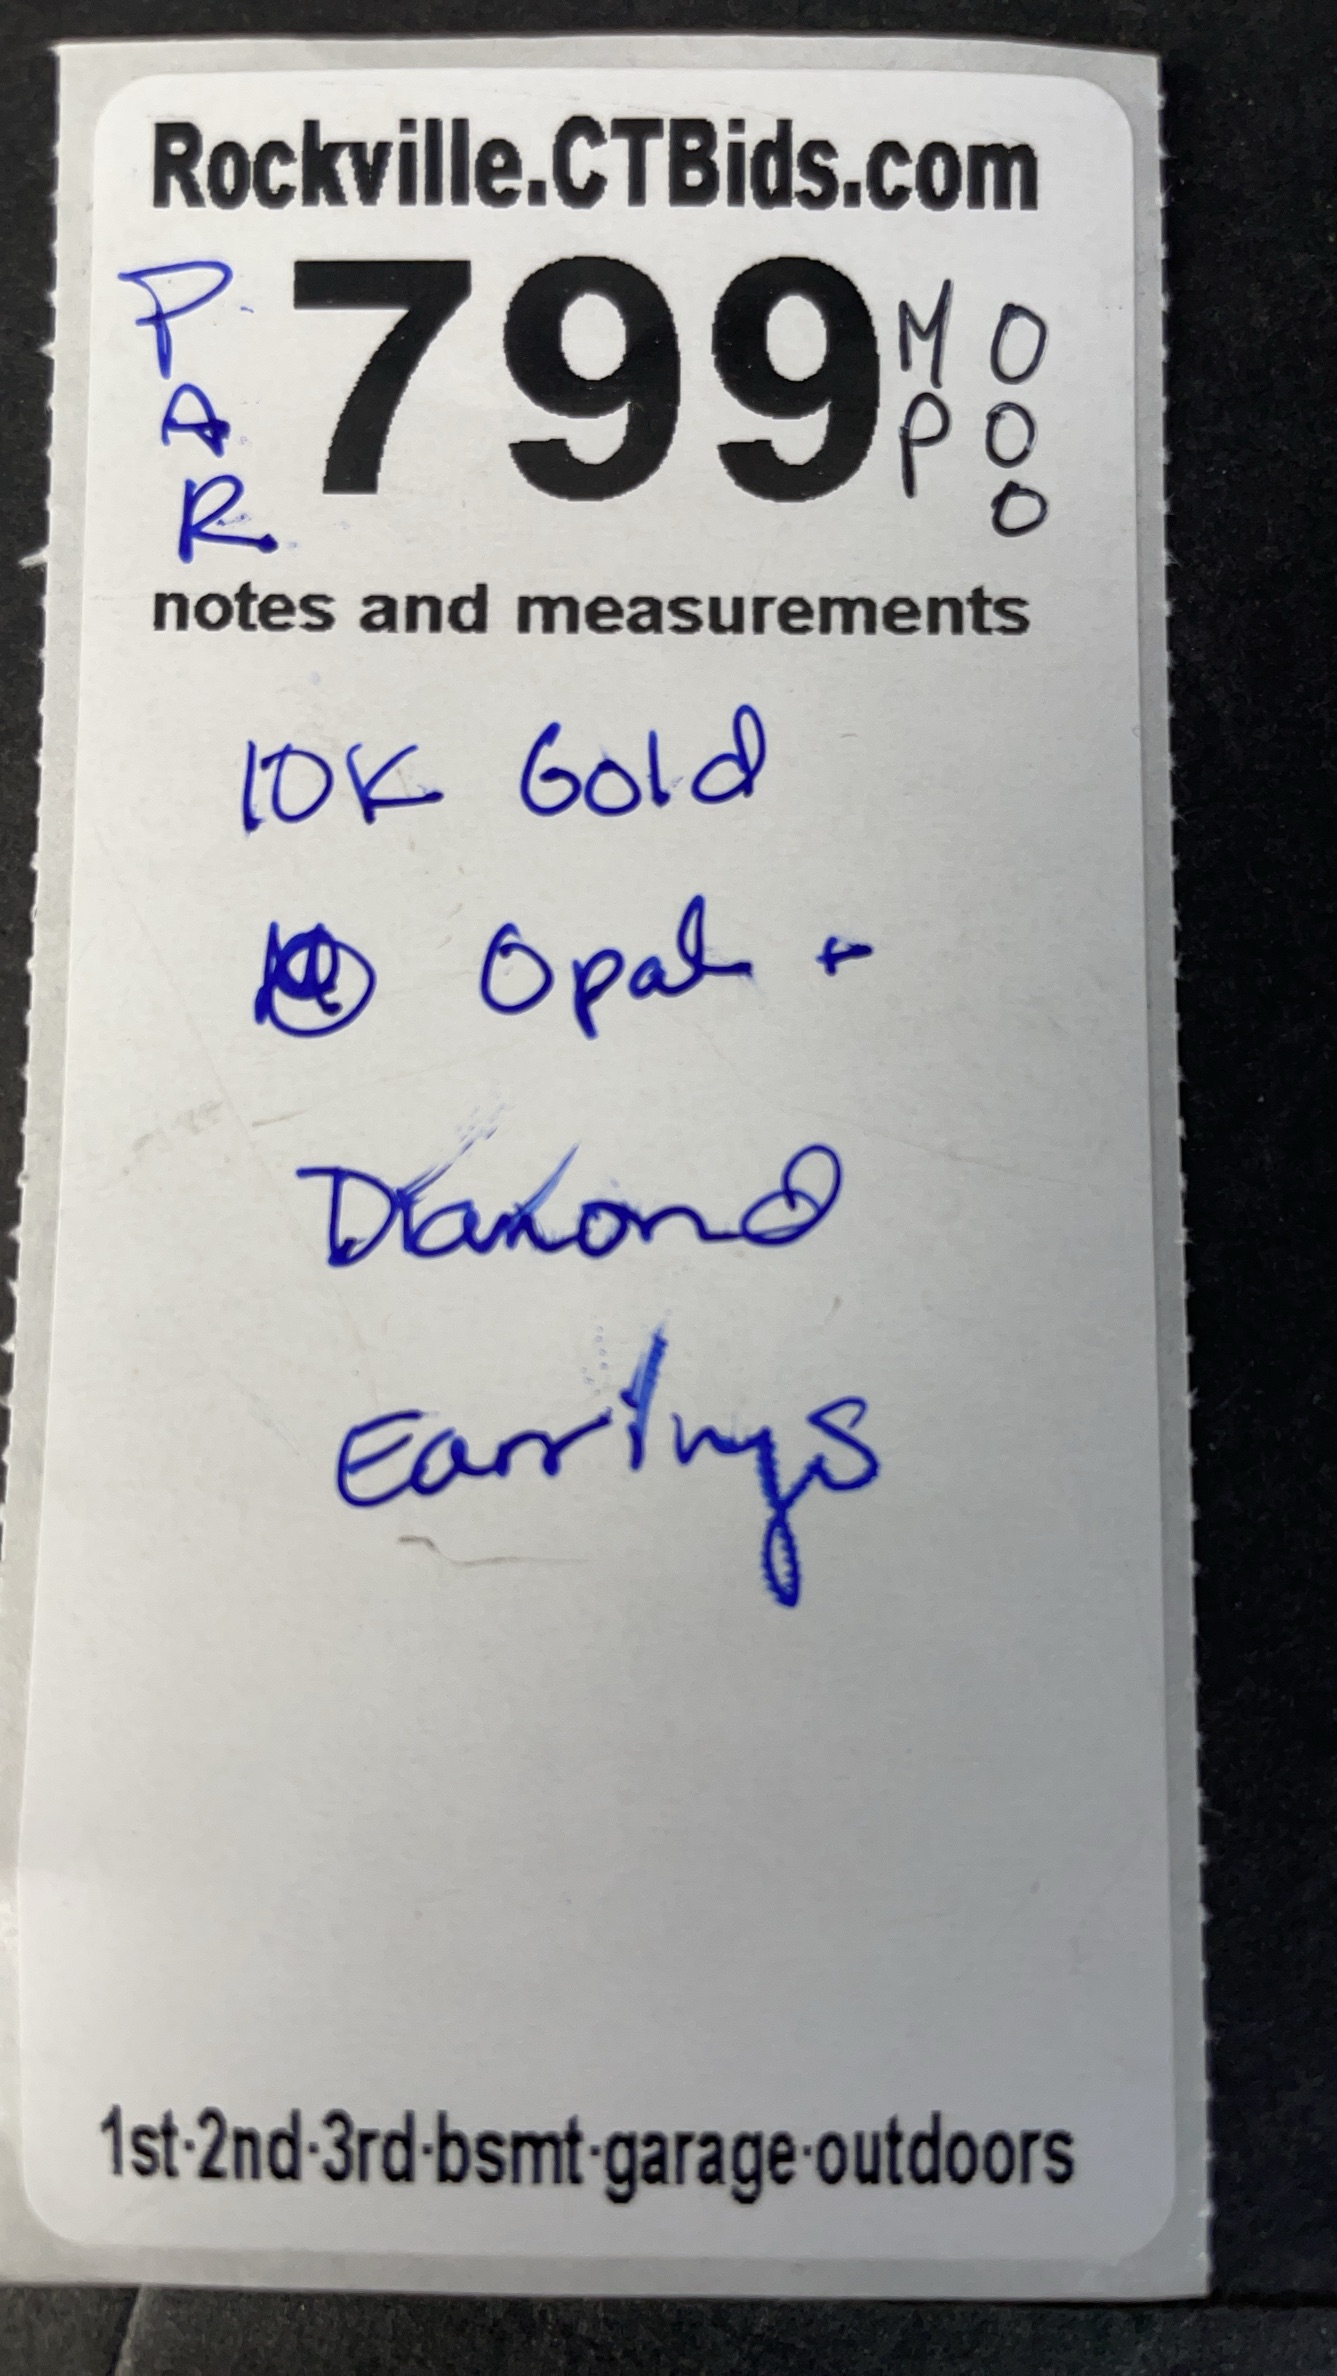 Rockville.CTBids.com
P
A
R
799
M O
P O
O
notes and measurements
10K Gold
Opal +
Diamond
Earrings
1st·2nd·3rd·bsmt·garage·outdoors